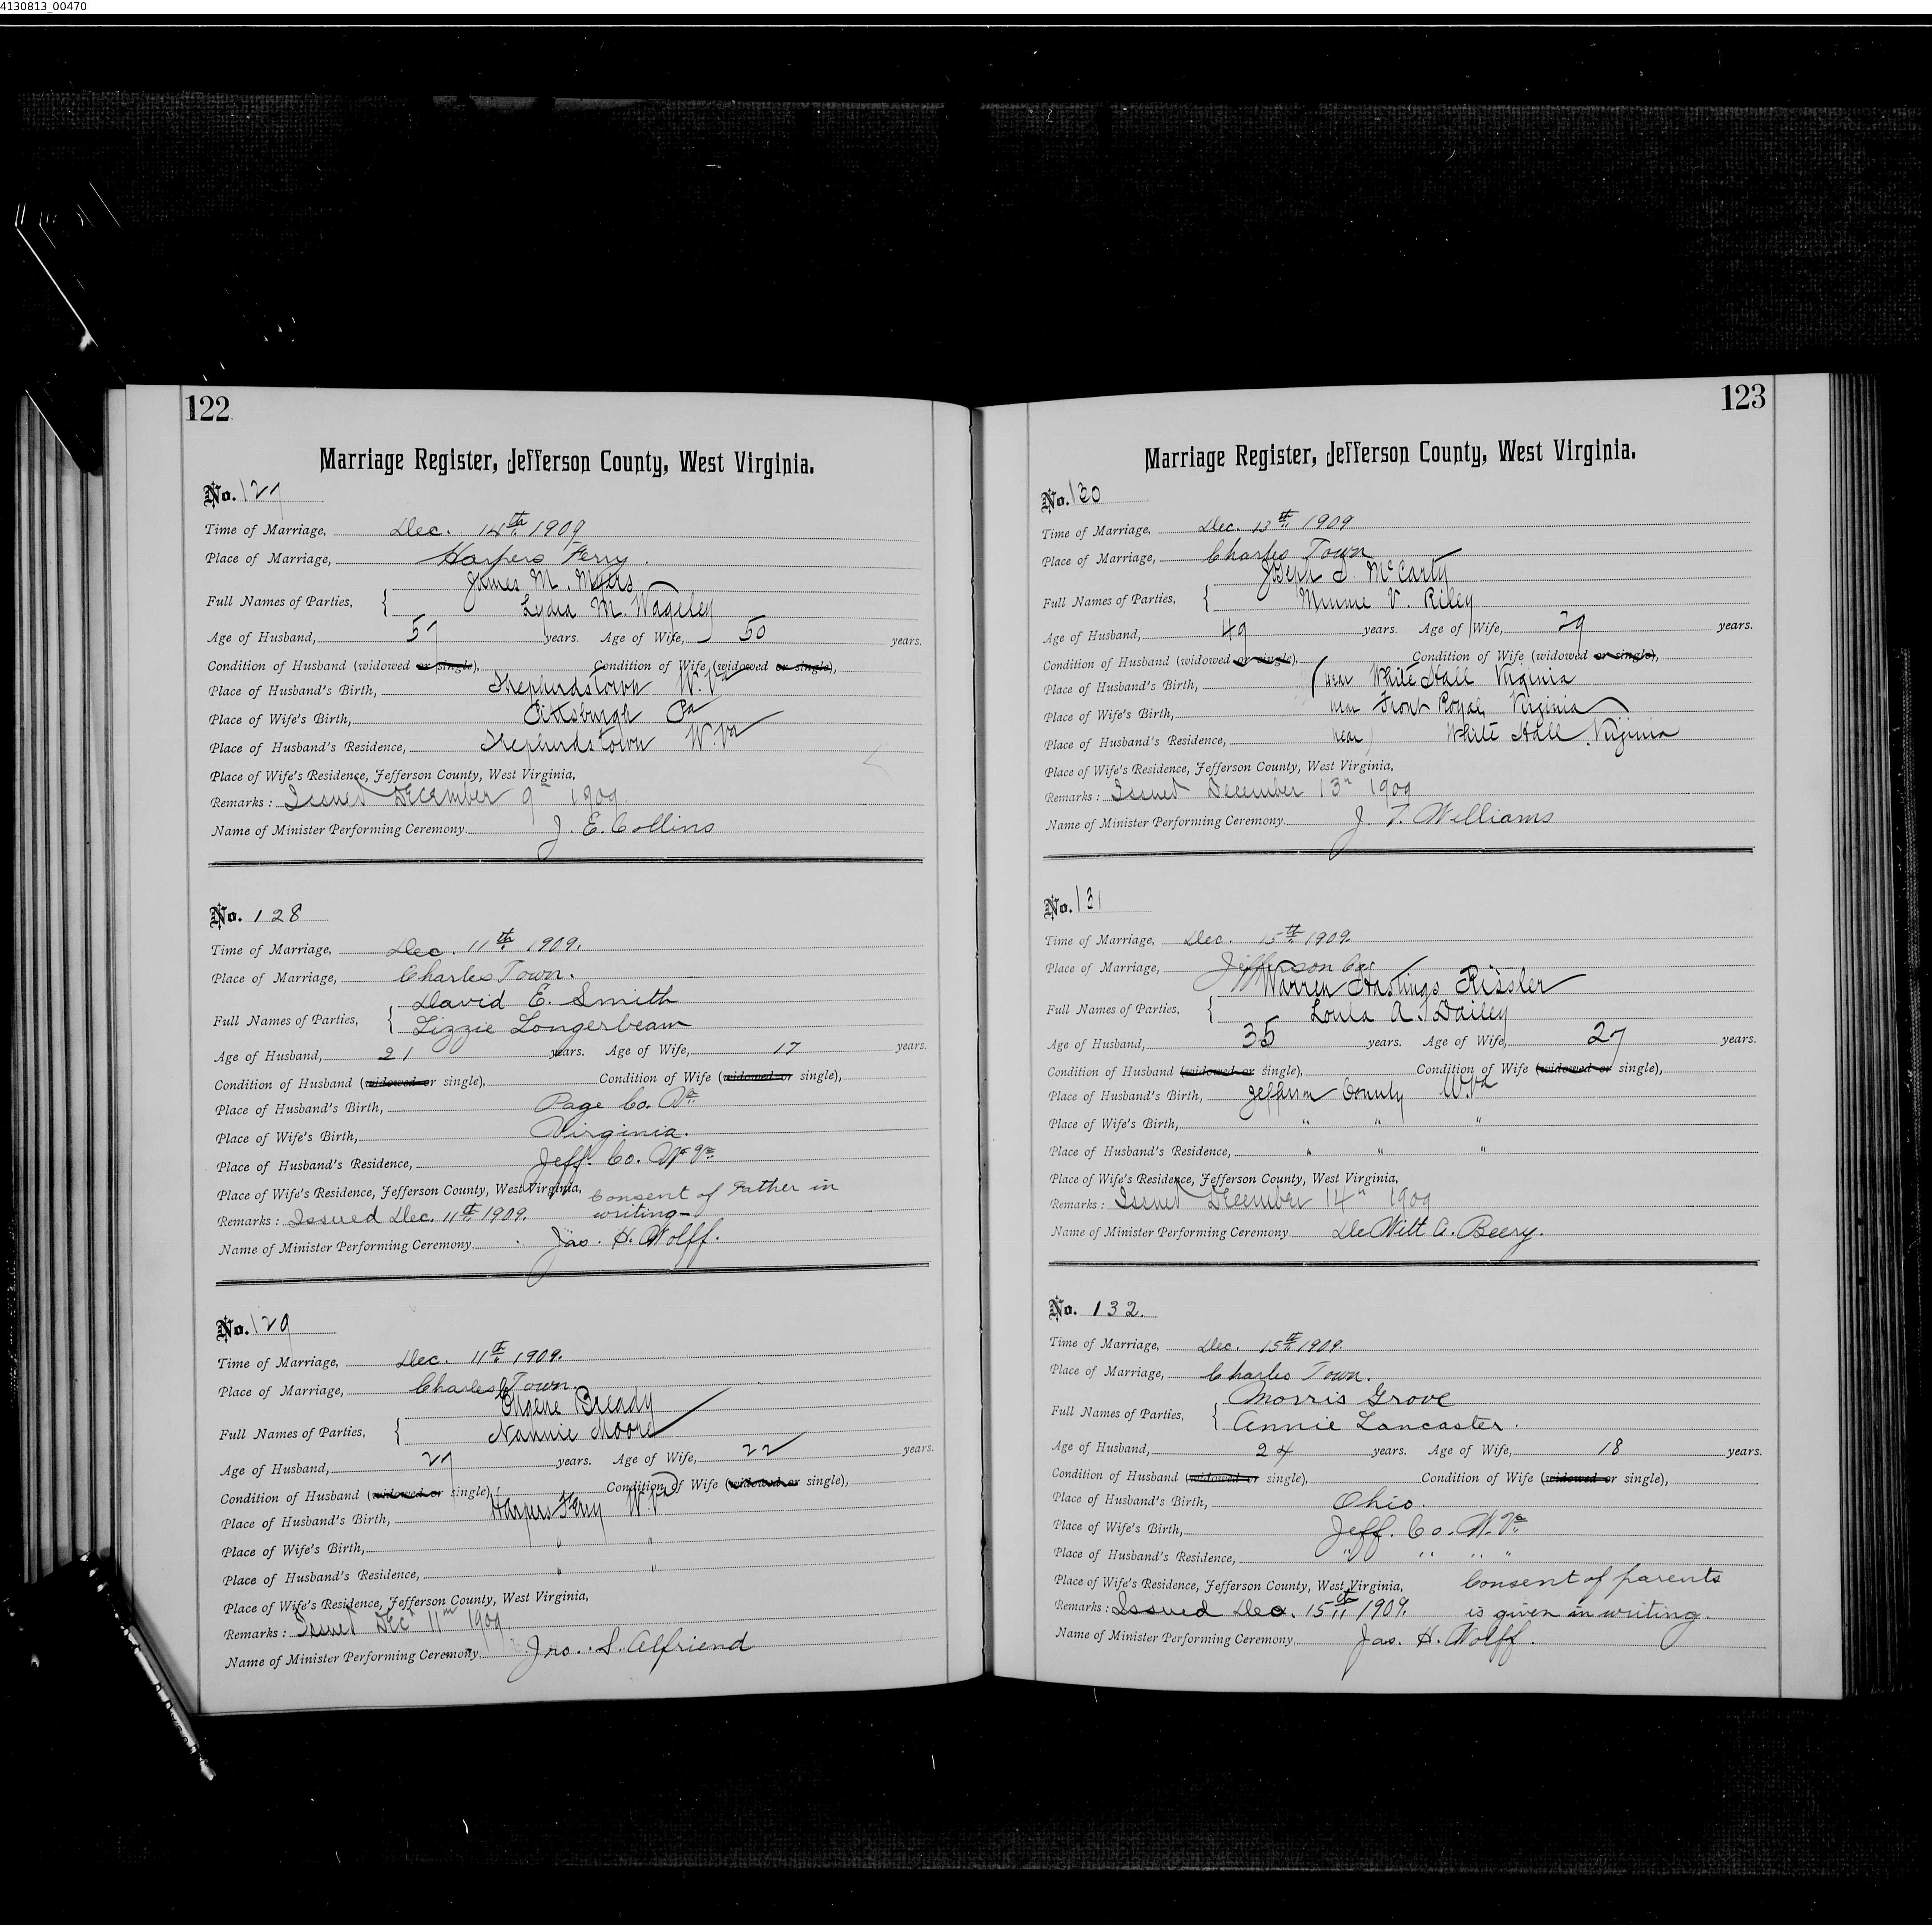 4130813_00470
122
Marriage Register, Jefferson County, West Virginia.
No. 127
Time of Marriage, Dec. 14th 1909
Place of Marriage, Harpers Ferry.
James M. Myers
Full Names of Parties, { Lydia M. Wageley
Age of Husband, 57 years. Age of Wife, 50 years.
Condition of Husband (widowed or single), Condition of Wife (widowed or single),
Place of Husband's Birth, Shepherdstown W.Va
Place of Wife's Birth, Pittsburgh Pa
Place of Husband's Residence, Shepherdstown W.Va
Place of Wife's Residence, Jefferson County, West Virginia,
Remarks: Issued December 9th 1909
Name of Minister Performing Ceremony J. E. Collins
No. 128
Time of Marriage, Dec. 11th 1909.
Place of Marriage, Charles Town.
David E. Smith
Full Names of Parties, { Lizzie Longerbeam
Age of Husband, 21 years. Age of Wife, 17 years.
Condition of Husband (widowed or single), Condition of Wife (widowed or single),
Place of Husband's Birth, Page Co. Va
Place of Wife's Birth, Virginia.
Place of Husband's Residence, Jeff. Co. W. Va.
Place of Wife's Residence, Jefferson County, West Virginia, Consent of Father in
Remarks: Issued Dec. 11th 1909. writing-
Name of Minister Performing Ceremony Jas. H. Wolff.
No. 129
Time of Marriage, Dec. 11th 1909.
Place of Marriage, Charles Town.
Eugene Bready
Full Names of Parties, { Nannie Moore
Age of Husband, 27 years. Age of Wife, 22 years.
Condition of Husband (widowed or single), Condition of Wife (widowed or single),
Place of Husband's Birth, Harpers Ferry W.Va
Place of Wife's Birth, " "
Place of Husband's Residence, " "
Place of Wife's Residence, Jefferson County, West Virginia,
Remarks: Issued Dec 11th 1909
Name of Minister Performing Ceremony, Jno. S. Alfriend
123
Marriage Register, Jefferson County, West Virginia.
No. 130
Time of Marriage, Dec. 13th 1909
Place of Marriage, Charles Town
Joseph McCarty
Full Names of Parties, { Minnie V. Riley
Age of Husband, 49 years. Age of Wife, 29 years.
Condition of Husband (widowed or single), Condition of Wife (widowed or single),
Place of Husband's Birth, near White Hall Virginia
Place of Wife's Birth, near Front Royal Virginia
Place of Husband's Residence, near White Hall Virginia
Place of Wife's Residence, Jefferson County, West Virginia,
Remarks: Issued December 13th 1909
Name of Minister Performing Ceremony. J. T. Williams
No. 131
Time of Marriage, Dec. 15th 1909.
Place of Marriage, Jefferson Co.
Warren Hastings Rissler
Full Names of Parties, { Loula A. Dailey
Age of Husband, 35 years. Age of Wife, 27 years.
Condition of Husband (widowed or single), Condition of Wife (widowed or single),
Place of Husband's Birth, Jefferson County W.Va
Place of Wife's Birth, " " "
Place of Husband's Residence, " " "
Place of Wife's Residence, Jefferson County, West Virginia,
Remarks: Issued December 14th 1909
Name of Minister Performing Ceremony DeWitt A. Beery.
No. 132.
Time of Marriage, Dec. 15th 1909.
Place of Marriage, Charles Town.
Morris Grove
Full Names of Parties, { Annie Lancaster.
Age of Husband, 24 years. Age of Wife, 18 years.
Condition of Husband (widowed or single), Condition of Wife (widowed or single),
Place of Husband's Birth, Ohio.
Place of Wife's Birth, Jeff. Co. W. Va.
Place of Husband's Residence, " " " "
Place of Wife's Residence, Jefferson County, West Virginia, Consent of parents
Remarks: Issued Dec. 15th 1909. is given in writing.
Name of Minister Performing Ceremony Jas. H. Wolff.